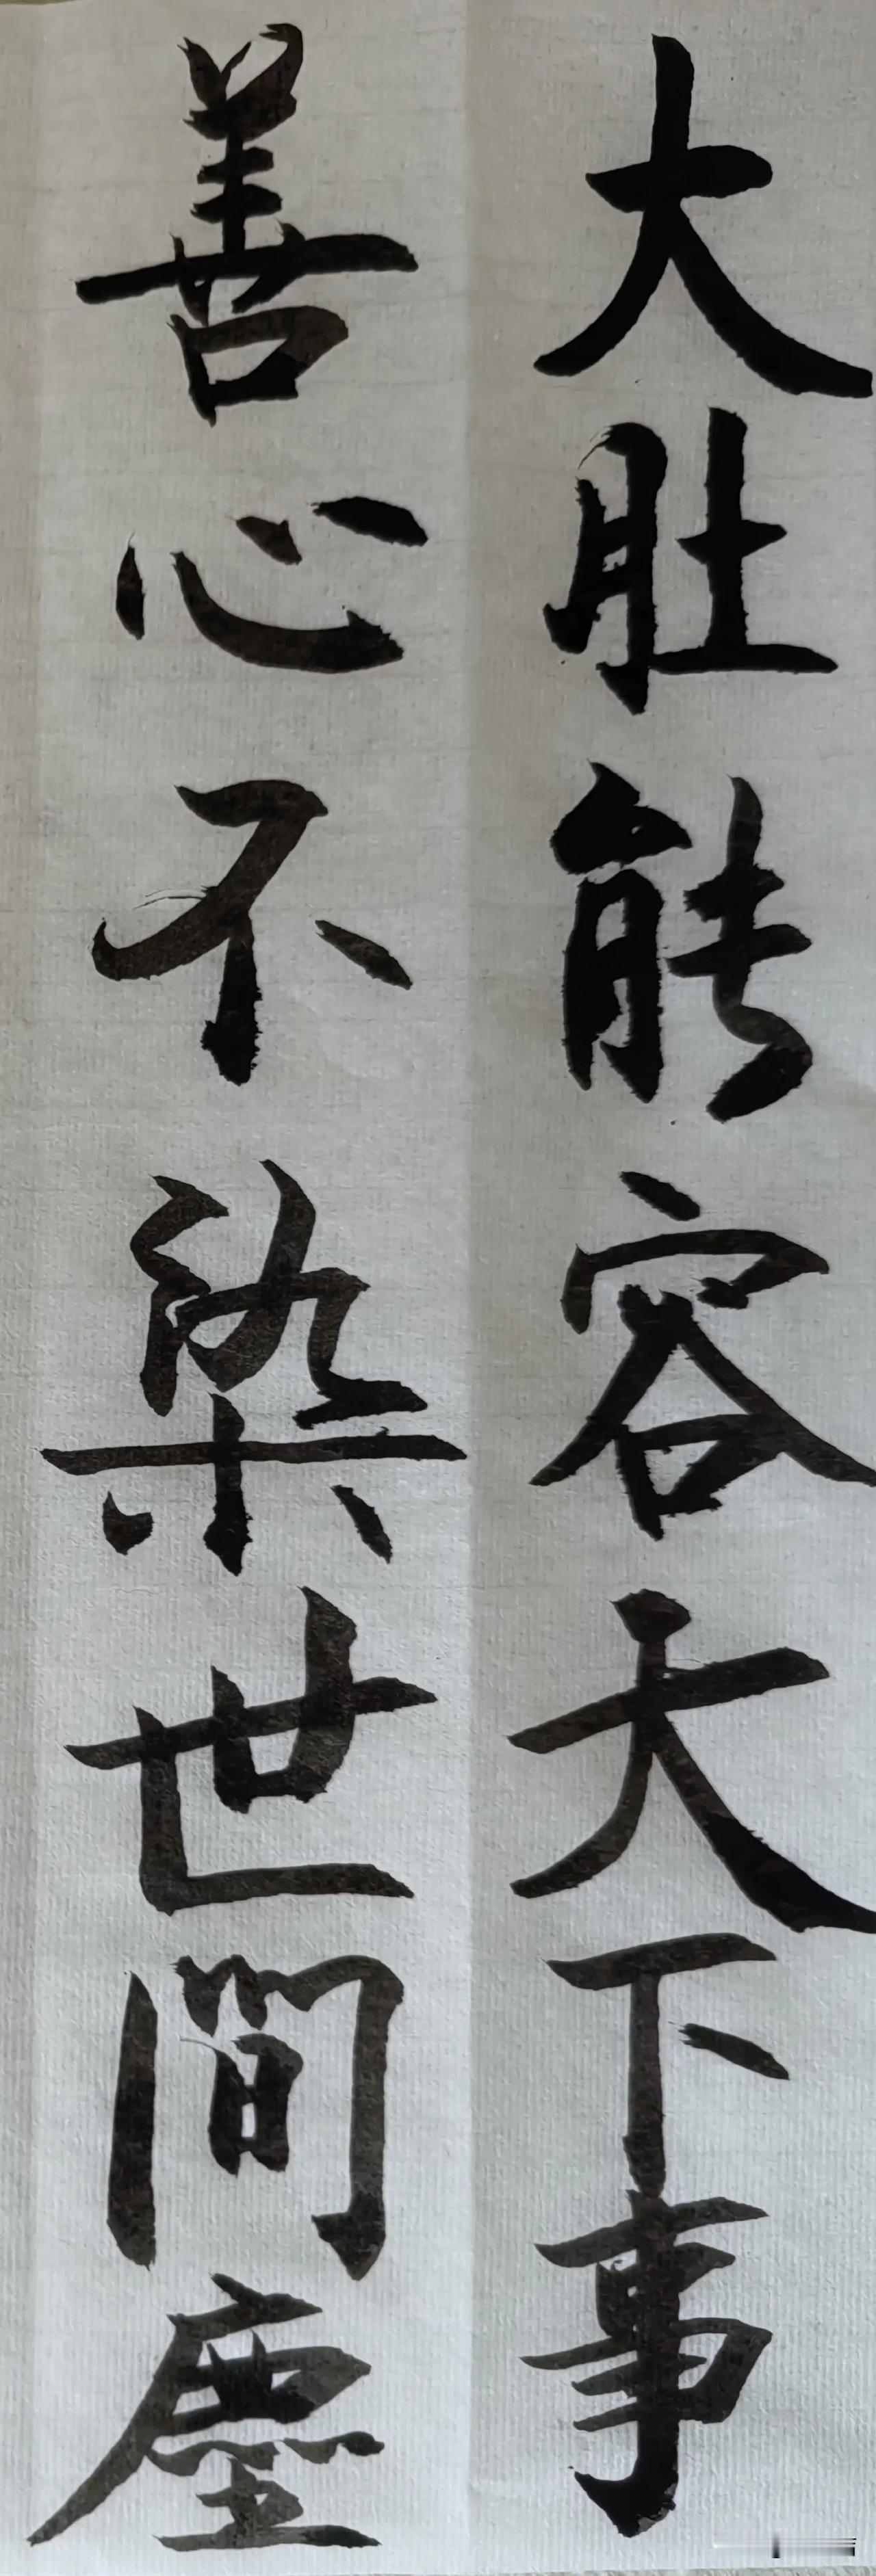 大肚能容天下事
善心不染世間塵